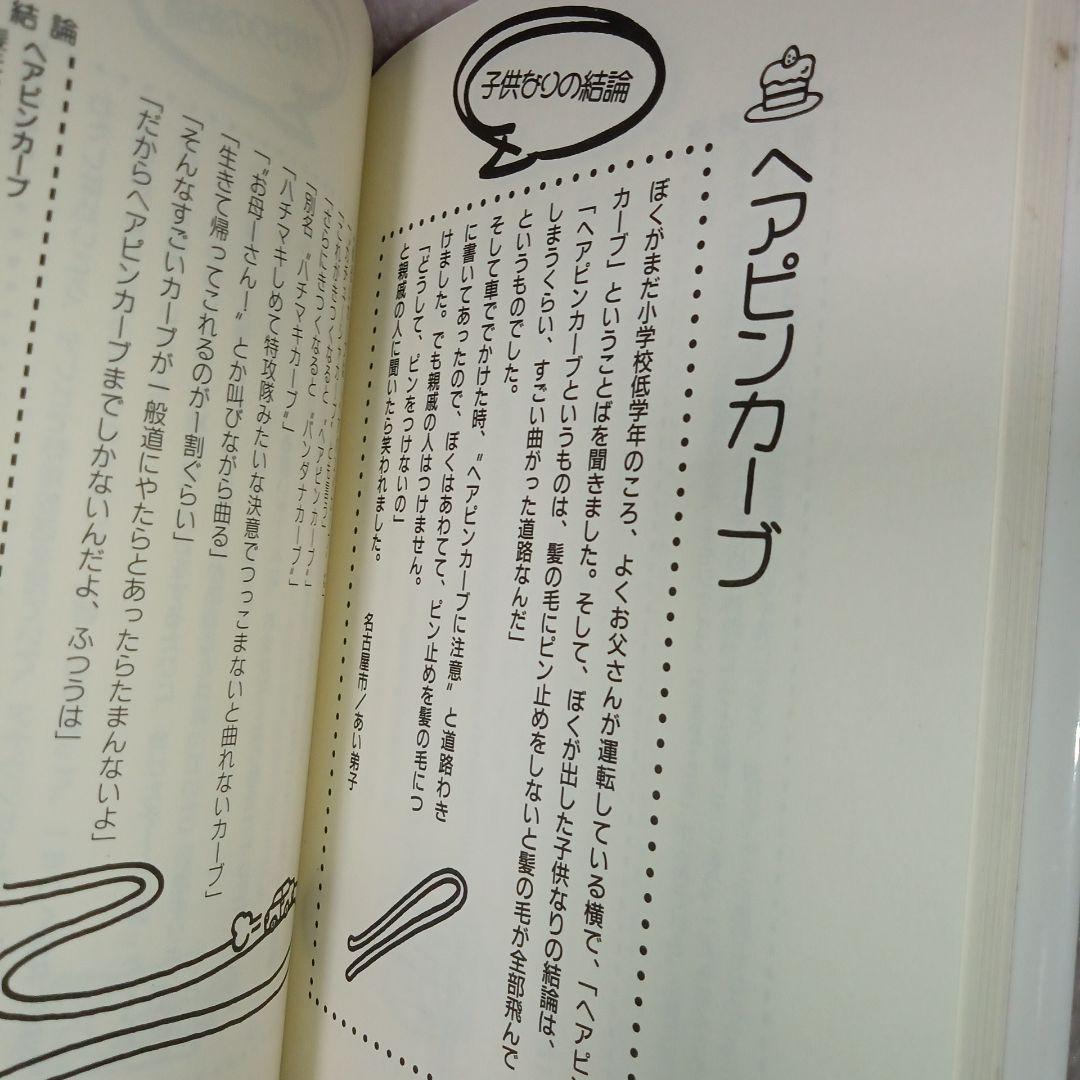 ヘアピンカーブ
子供なりの結論
ぼくがまだ小学校低学年のころ、よくお父さんが運転している横で、「ヘアピン
カーブ」ということばを聞きました。そして、ぼくが出した子供なりの結論は、
「ヘアピンカーブというものは、髪の毛にピン止めをしないと髪の毛が全部飛んで
しまうくらい、すごい曲がった道路なんだ」
というものでした。
そして車ででかけた時、“ヘアピンカーブに注意”と道路わき
に書いてあったので、ぼくはあわてて、ピン止めを髪の毛につ
けました。でも親戚の人はつけません。
「どうして、ピンをつけないの」
と親戚の人に聞いたら笑われました。
名古屋市/あい弟子
「さらにきつくなると、“バンダナカーブ”」
「別名“ハチマキカーブ”」
「ハチマキしめて特攻隊みたいな決意でつっこまないと曲れないカーブ」
「“お母ーさん!”とか叫びながら曲る」
「生きて帰ってこれるのが一割ぐらい」
「そんなすごいカーブが一般道にやたらとあったらたまんないよ」
「だからヘアピンカーブまでしかないんだよ、ふつうは」
結論
ヘアピンカーブ